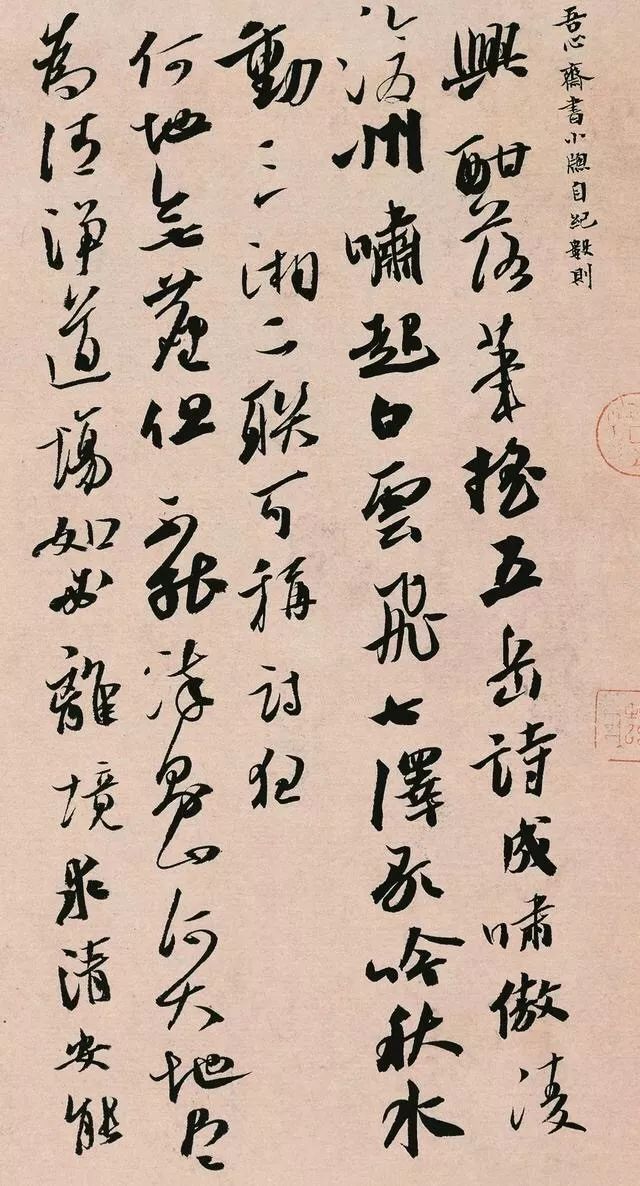 吾心齋書小牕自紀數則
興酣落筆搖五岳詩成嘯傲凌
滄洲嘯起白雲飛七澤歌吟秋水
動三湘二聯可稱詩狂
何地無塵但不能染則山河大地尽
為清淨道場如必離境求清安能